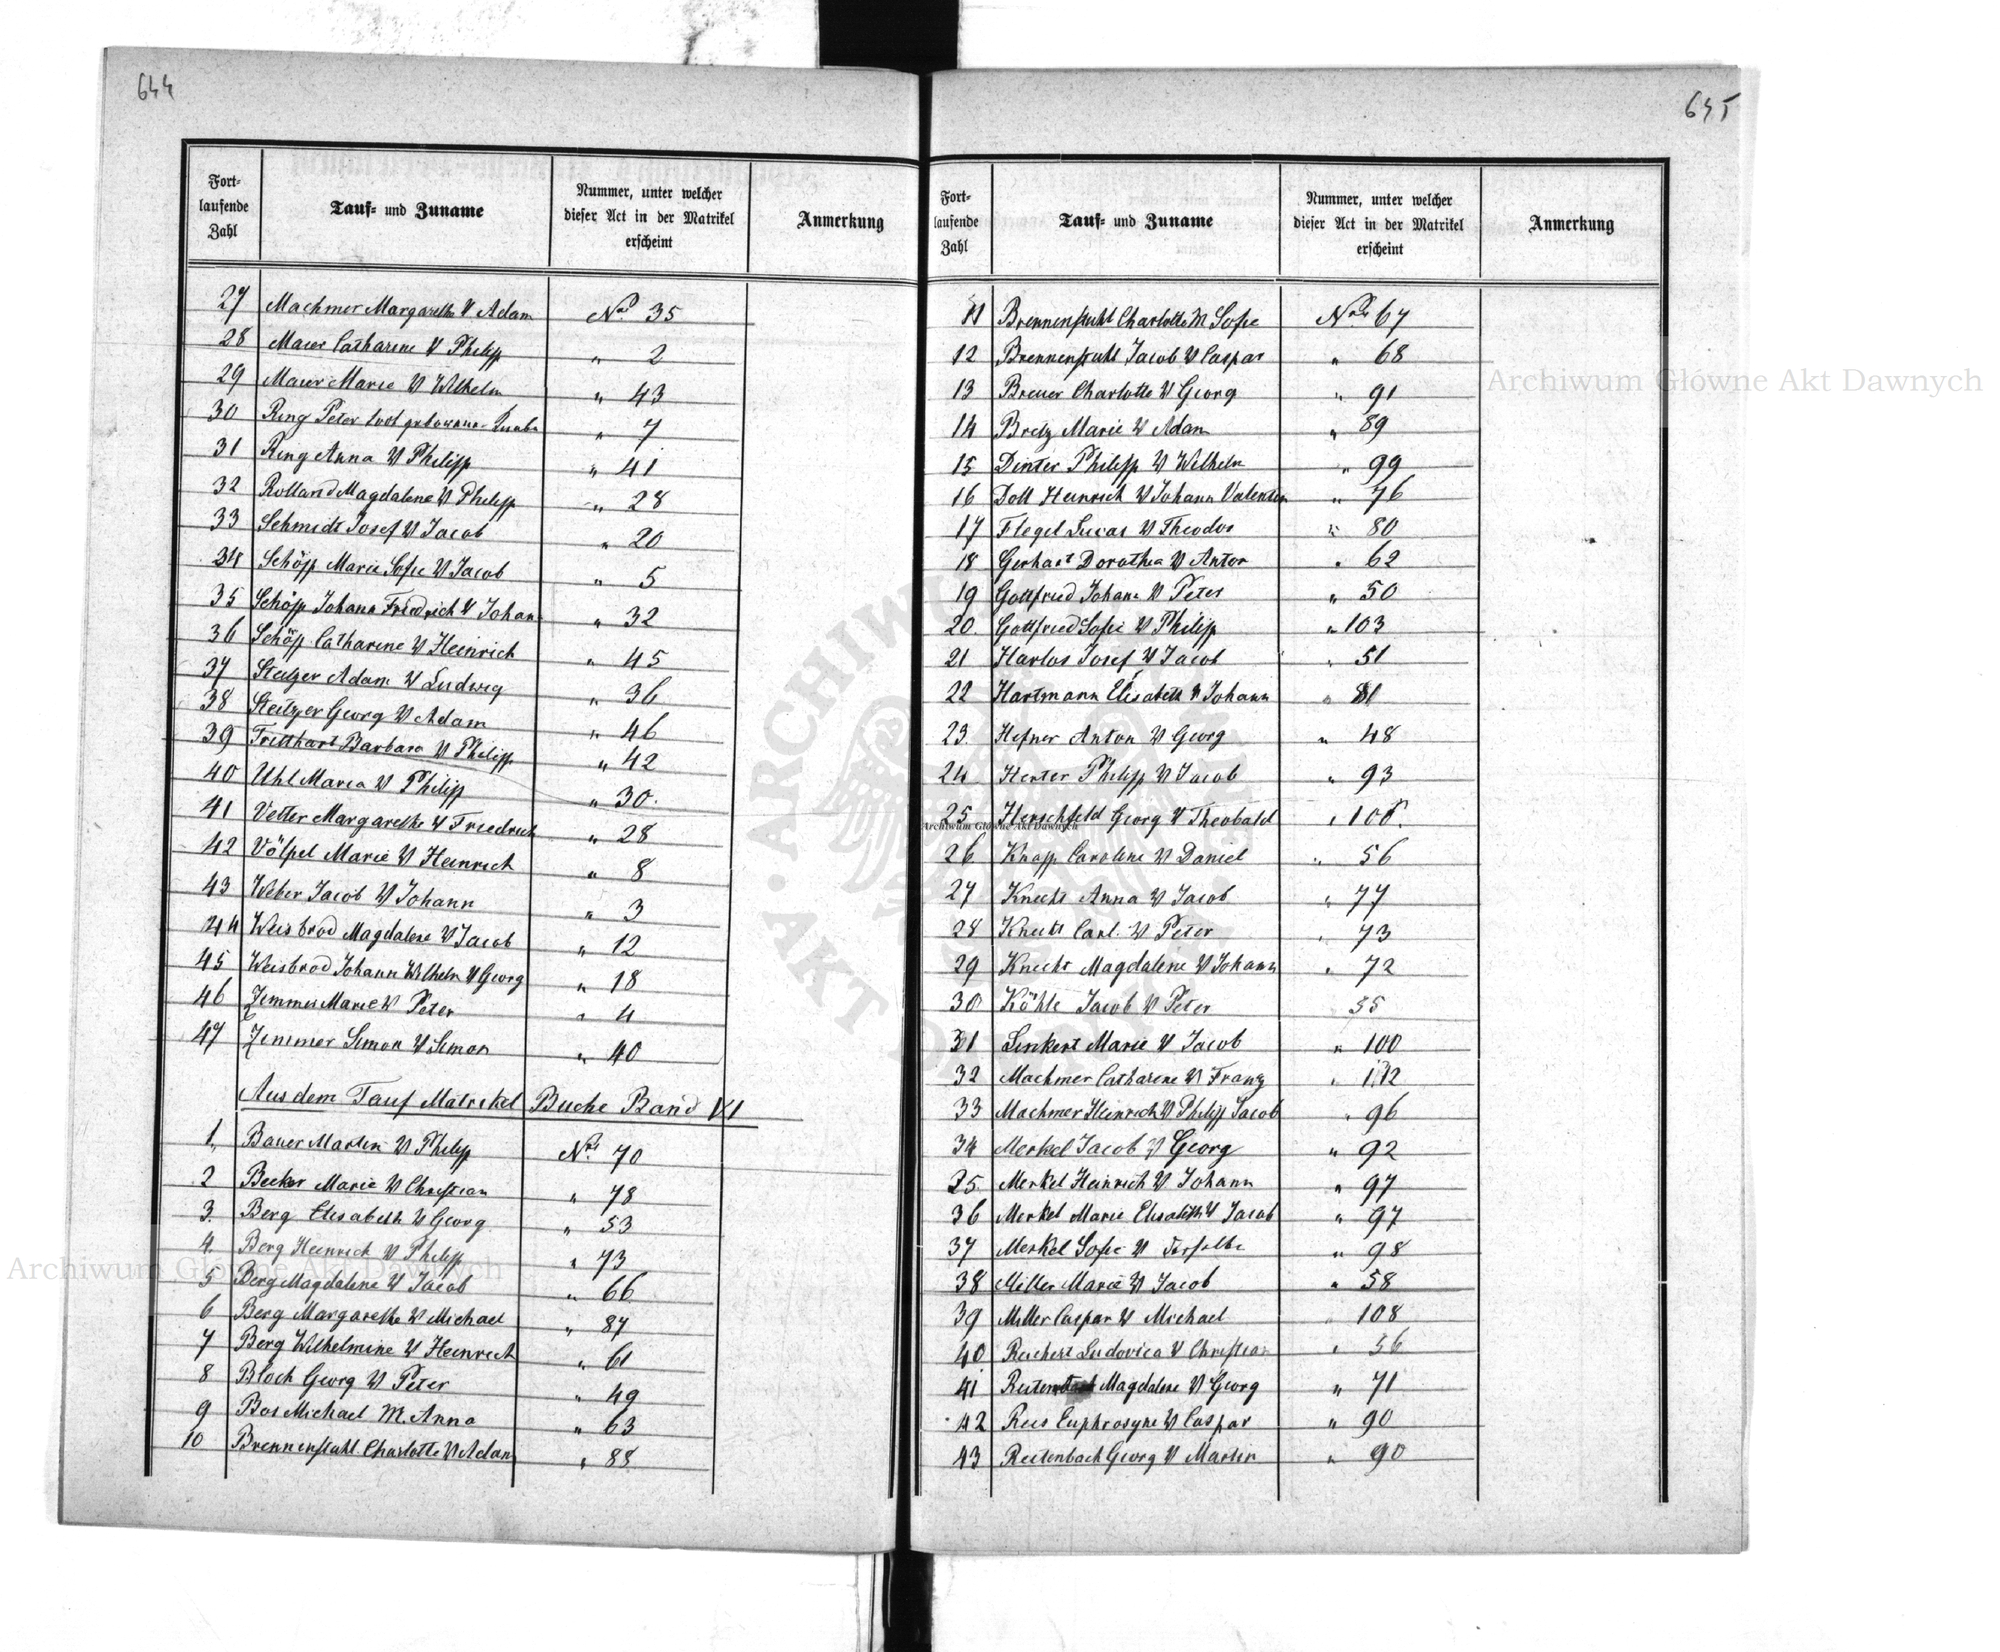 644
Fort-
laufende
Zahl
Tauf- und Zuname
Nummer, unter welcher
dieser Act in der Matrikel
erscheint
Anmerkung
27 Machmer Margarethe V Adam Nro 35
28 Maier Catharine V Philipp " 2
29 Maier Marie V Wilhelm " 43
30 Ring Peter todt geborener Knabe " 7
31 Ring Anna V Philipp " 41
32 Rolland Magdalene V Philipp " 28
33 Schmidt Josef V Jacob " 20
34 Schöpp Marie Sofie V Jacob " 5
35 Schöpp Johann Friedrich V Johann " 32
36 Schöpp Catharine V Heinrich " 45
37 Steitzer Adam V Ludwig " 36
38 Steitzer Georg V Adam " 46
39 Tritthart Barbara V Philipp " 42
40 Uhl Maria V Philipp " 30.
41 Vetter Margarethe V Friedrich " 28
42 Völpel Marie V Heinrich " 8
43 Weber Jacob V Johann " 3
44 Weisbrod Magdalene V Jacob " 12
45 Weisbrod Johann Wilhelm V Georg " 18
46 Zimmer Marie V Peter " 4
47 Zimmer Simon V Simon " 40
Aus dem Tauf Matrikel Buche Band VI
1. Bauer Martin V Philipp Nro 70
2 Becker Marie V Christian " 78
3. Berg Elisabeth V Georg " 53
4. Berg Heinrich V Philipp " 73
5 Berg Magdalene V Jacob " 66
6 Berg Margarethe V Michael " 87
7 Berg Wilhelmine V Heinrich " 61
8 Bloch Georg V Peter " 49
9 Bos Michael M. Anna " 63
10 Brennenstuhl Charlotte V Adam " 88
645
Fort-
laufende
Zahl
Tauf- und Zuname
Nummer, unter welcher
dieser Act in der Matrikel
erscheint
Anmerkung
11 Brennenstuhl Charlotte M Sofie Nro 67
12 Brennenstuhl Jacob V Caspar " 68
13 Breuer Charlotte V Georg " 91
14 Bretz Marie V Adam " 89
15 Dinter Philipp V Wilhelm " 99
16 Doll Heinrich V Johann Valentin " 76
17 Flegel Lucas V Theodor " 80
18 Gerhart Dorothea V Anton " 62
19 Gottfried Johann V Peter " 50
20. Gottfried Sofie V Philipp " 103
21 Harlos Josef V Jacob " 51
22 Hartmann Elisabeth V Johann " 81
23. Hefner Anton V Georg " 48
24 Herter Philipp V Jacob " 93
25 Herschfeld Georg V Theobald
26 Knapp Caroline V Daniel " 56
27 Knecht Anna V Jacob " 77
28 Knecht Carl V Peter " 73
29 Knecht Magdalene V Johann " 72
30 Köhle Jacob V Peter 55
31 Linkert Marie V Jacob " 100
32 Machmer Catharine V Franz " 112
33 Machmer Heinrich V Philipp Jacob " 96
34 Merkel Jacob V Georg " 92
35 Merkel Heinrich V Johann " 97
36 Merkel Marie Elisabeth V Jacob " 97
37 Merkel Sofie V derselbe " 98
38 Miller Marie V Jacob " 58
39 Miller Caspar V Michael 108
40 Reichert Ludovica V Christian " 56
41 Magdalene V Georg " 71
42 Reis Euphrosyne V Caspar " 90
43 Reitenbach Georg V Martin " 90
Archiwum Główne Akt Dawnych
Archiwum Główne Akt Dawnych
Archiwum Główne Akt Dawnych